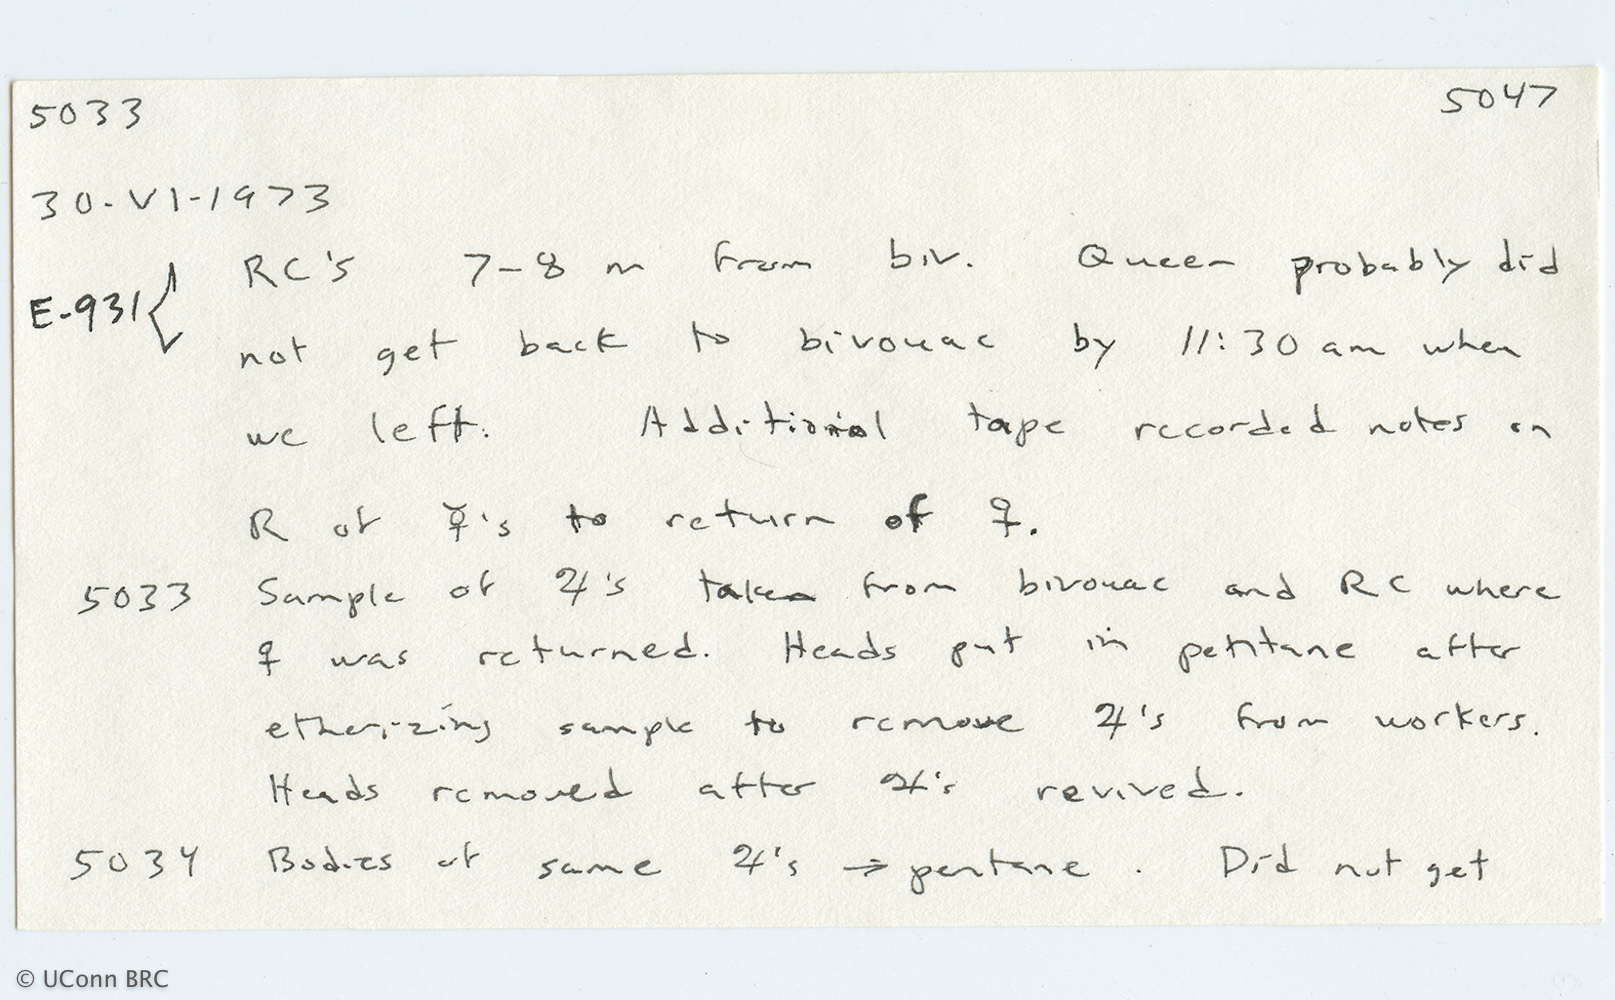 5033 5047
30-VI-1973
RC's 7-8 m from biv. Queen probably did
E-931 { not get back to bivouac by 11:30 am when
we left. Additional tape recorded notes on
R of ☿'s to return of ♀.
5033 Sample of ♃'s taken from bivouac and RC where
♀ was returned. Heads put in pentane after
etherizing sample to remove ♃'s from workers.
Heads removed after ♃'s revived.
5034 Bodies of same ♃'s → pentane. Did not get
© UConn BRC